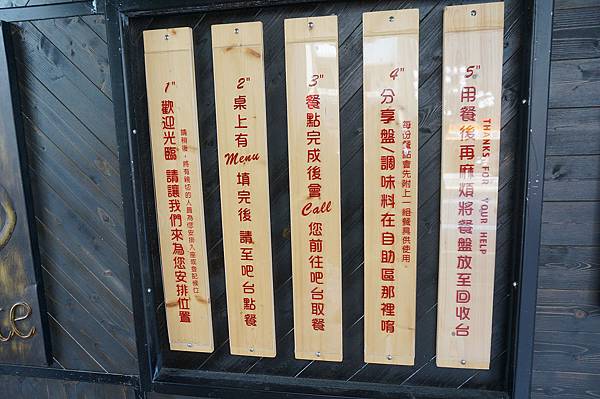 1" 歡迎光臨 請讓我們來為您安排位置
請稍後，將有親切的人員為您安排入座或登記候位
2" 桌上有 Menu 填完後 請至吧台點餐
3" 餐點完成後會 Call 您前往吧台取餐
4" 分享盤/調味料在自助區那裡唷
每份餐點會先附上一組餐具供使用。
5" 用餐後再麻煩將餐盤放至回收台
THANKS FOR YOUR HELP